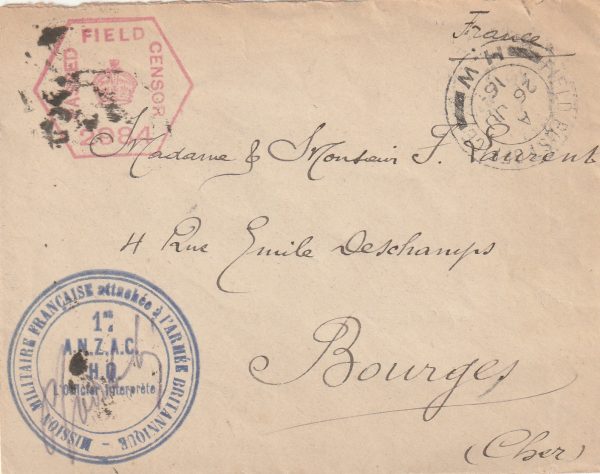 PASSED FIELD CENSOR
2084
France
FIELD POST OFFICE
H W
26 JU
16
Madame & Monsieur J. Laurent
4 Rue Emile Deschamps
Bourges
(Cher)
MISSION MILITAIRE FRANÇAISE attachée à l'ARMÉE BRITANNIQUE
1er
A.N.Z.A.C.
H.Q.
L'Officier Interprète